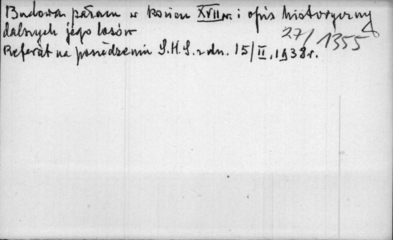 Budowa pałacu w końcu XVII w. i opis historyczny
dalszych jego losów
27/1355
Referat na posiedzeniu S.H.S. z dn. 15/II.1938 r.